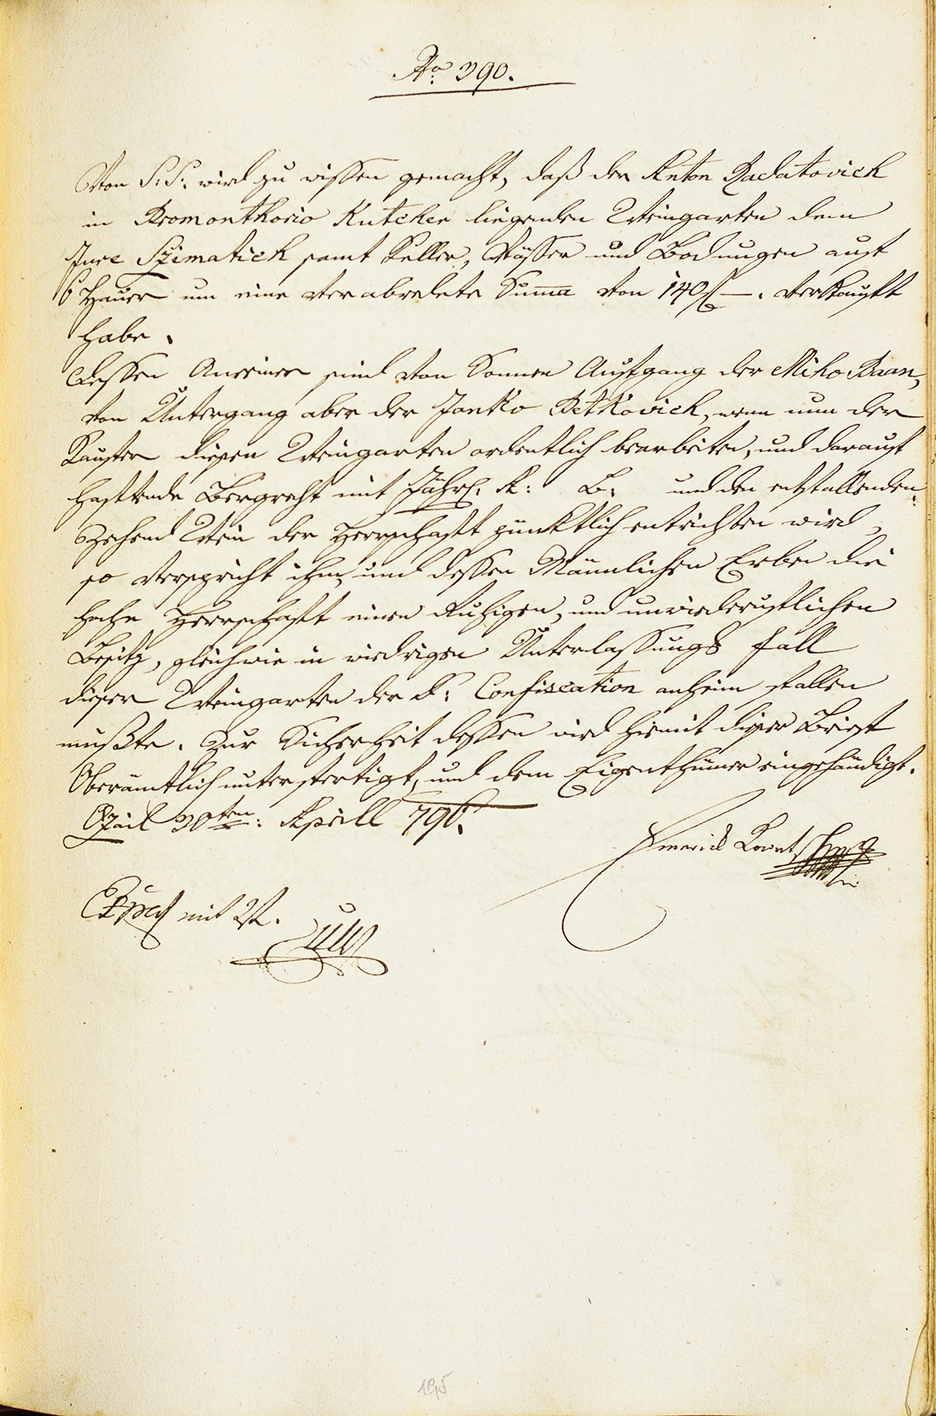 No 390.
Von S: S: wird zu wissen gemacht, daß der Anton Radatovich
in Promonthorio Kutcher liegenden Weingarten dem
Jure Szimatich samt Keller, Vässer und Bodungen auf
6 Hauer um eine verabredete Summa von 140 f –. verkauft
habe.
Dessen Anreiner sind von Sonnen Aufgang der Miho Baan,
von Untergang aber der Janko Petkovich, wenn nun der
Kaufer diesen Weingarten ordentlich bearbeiten, und darauf
haftende Bergrecht mit Jährl. K: B: und den entfallenden
Zehend Wein der Herrschaft pünktlich entrichten wird,
so verspricht ihm, und dessen Männlichen Erben die
hohe Herrschaft einen Ruhigen, und unwiederruflichen
Besitz, gleichwie in wiedrigen Unterlassungs fall
dieser Weingarten der K: Confiscation anheim fallen
mußte. Zur Sicherheit dessen wird hiemit dieser Brief
Oberämtlich unterfertigt, und dem Eigenthümer eingehändigt.
30ten: Aprill 796.
Emerich
mit
195